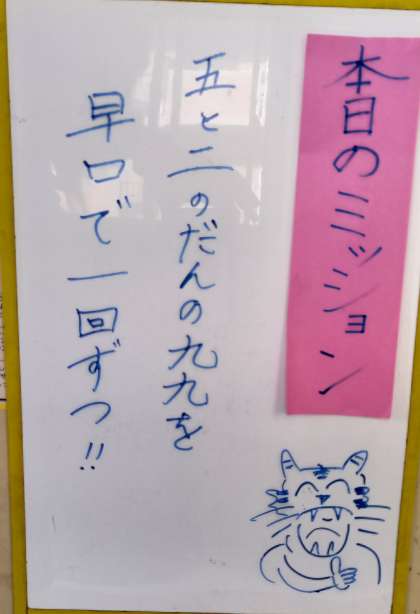 本日のミッション
五と二のだんの九九を
早口で一回ずつ!!